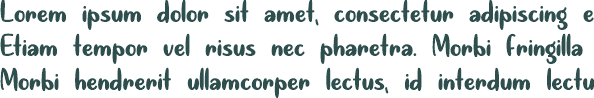 Lorem ipsum dolor sit amet, consectetur adipiscing e
Etiam tempor vel risus nec pharetra. Morbi fringilla
Morbi hendrerit ullamcorper lectus, id interdum lectu